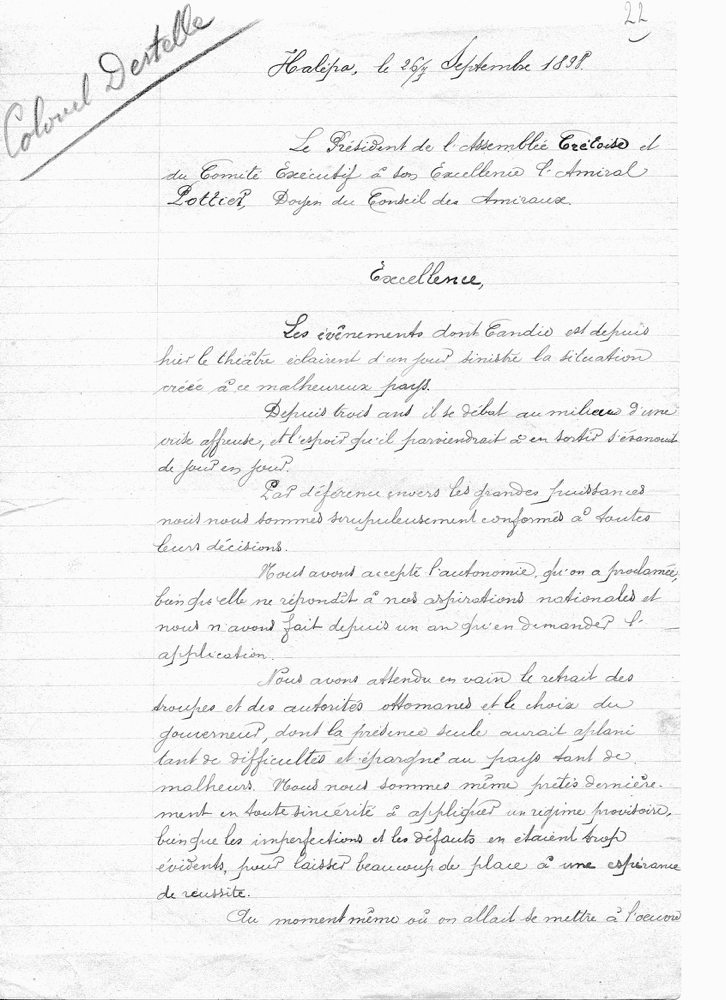 22
Colonel Destelle
Halépa, le 26/7 Septembre 1898.
Le Président de l'Assemblée Crétoise et
du Comité Exécutif à Son Excellence l'Amiral
Pottier, Doyen du Conseil des Amiraux.
Excellence,
Les évênements dont Candie est depuis
hier le théâtre éclairent d'un jour sinistre la situation
créée à ce malheureux pays.
Depuis trois ans il se débat au milieu d'une
crise affreuse, et l'espoir qu'il parviendrait à en sortir s'évanouit
de jour en jour.
Par déférence envers les grandes puissances
nous nous sommes scrupuleusement conformés à toutes
leurs décisions.
Nous avons accepté l'autonomie, qu'on a proclamée,
bien qu'elle ne répondît à nos aspirations nationales et
nous n'avons fait depuis un an qu'en demander l'
application.
Nous avons attendu en vain le retrait des
troupes et des autorités ottomanes et le choix du
gouverneur, dont la présence seule aurait aplani
tant de difficultés et épargné au pays tant de
malheurs. Nous nous sommes même prêtés dernière-
ment en toute sincérité à appliquer un régime provisoire,
bien que les imperfections et les défauts en étaient trop
évidents, pour laisser beaucoup de place à une espérance
de réussite.
Au moment même où on allait se mettre à l'oeuvre